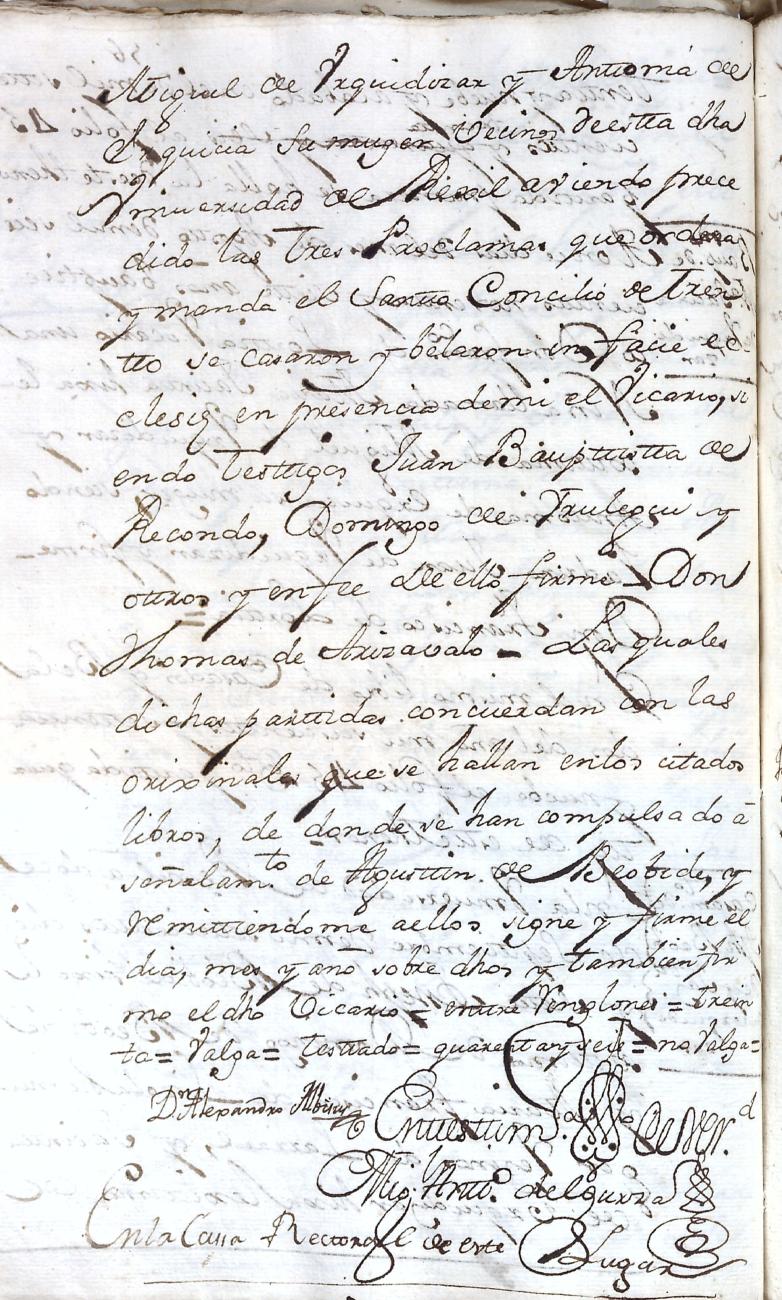 Miguel de Vrquidizar y Anttonia de
Ezquicia su muger Vecinos de estta dha
Vniversidad de Rexil aviendo prece
dido las tres Proclamas que ordena
y manda el Santto Concilio de Tren
tto se casaron y belaron in facie ec
clesię en presencia de mi el Vicario, si
endo testtigos Juan Bauptistta de
Recondo, Domingo de Yrulegui y
ottros y en fee de ello firmé = Don
Thomas de Arizavalo = Las quales
dichas parttidas concuerdan con las
orixinales que se hallan en los citados
libros, de donde se han compulsado á
señalam.to de Agusttin de Beobide, y
remittiendome a ellos signe y firme el
dia, mes y año sobre dhos y tambien fir
mo el dho Vicario = enttre Renglones = trein
ta = Valga = testtado = quarenta y siete = no Valga =
Dn Alexandro Albisu
En testtim.o de Ver.d
Mig.l Antt.o de Lgurza
En la Cassa Rectoral de este Lugar